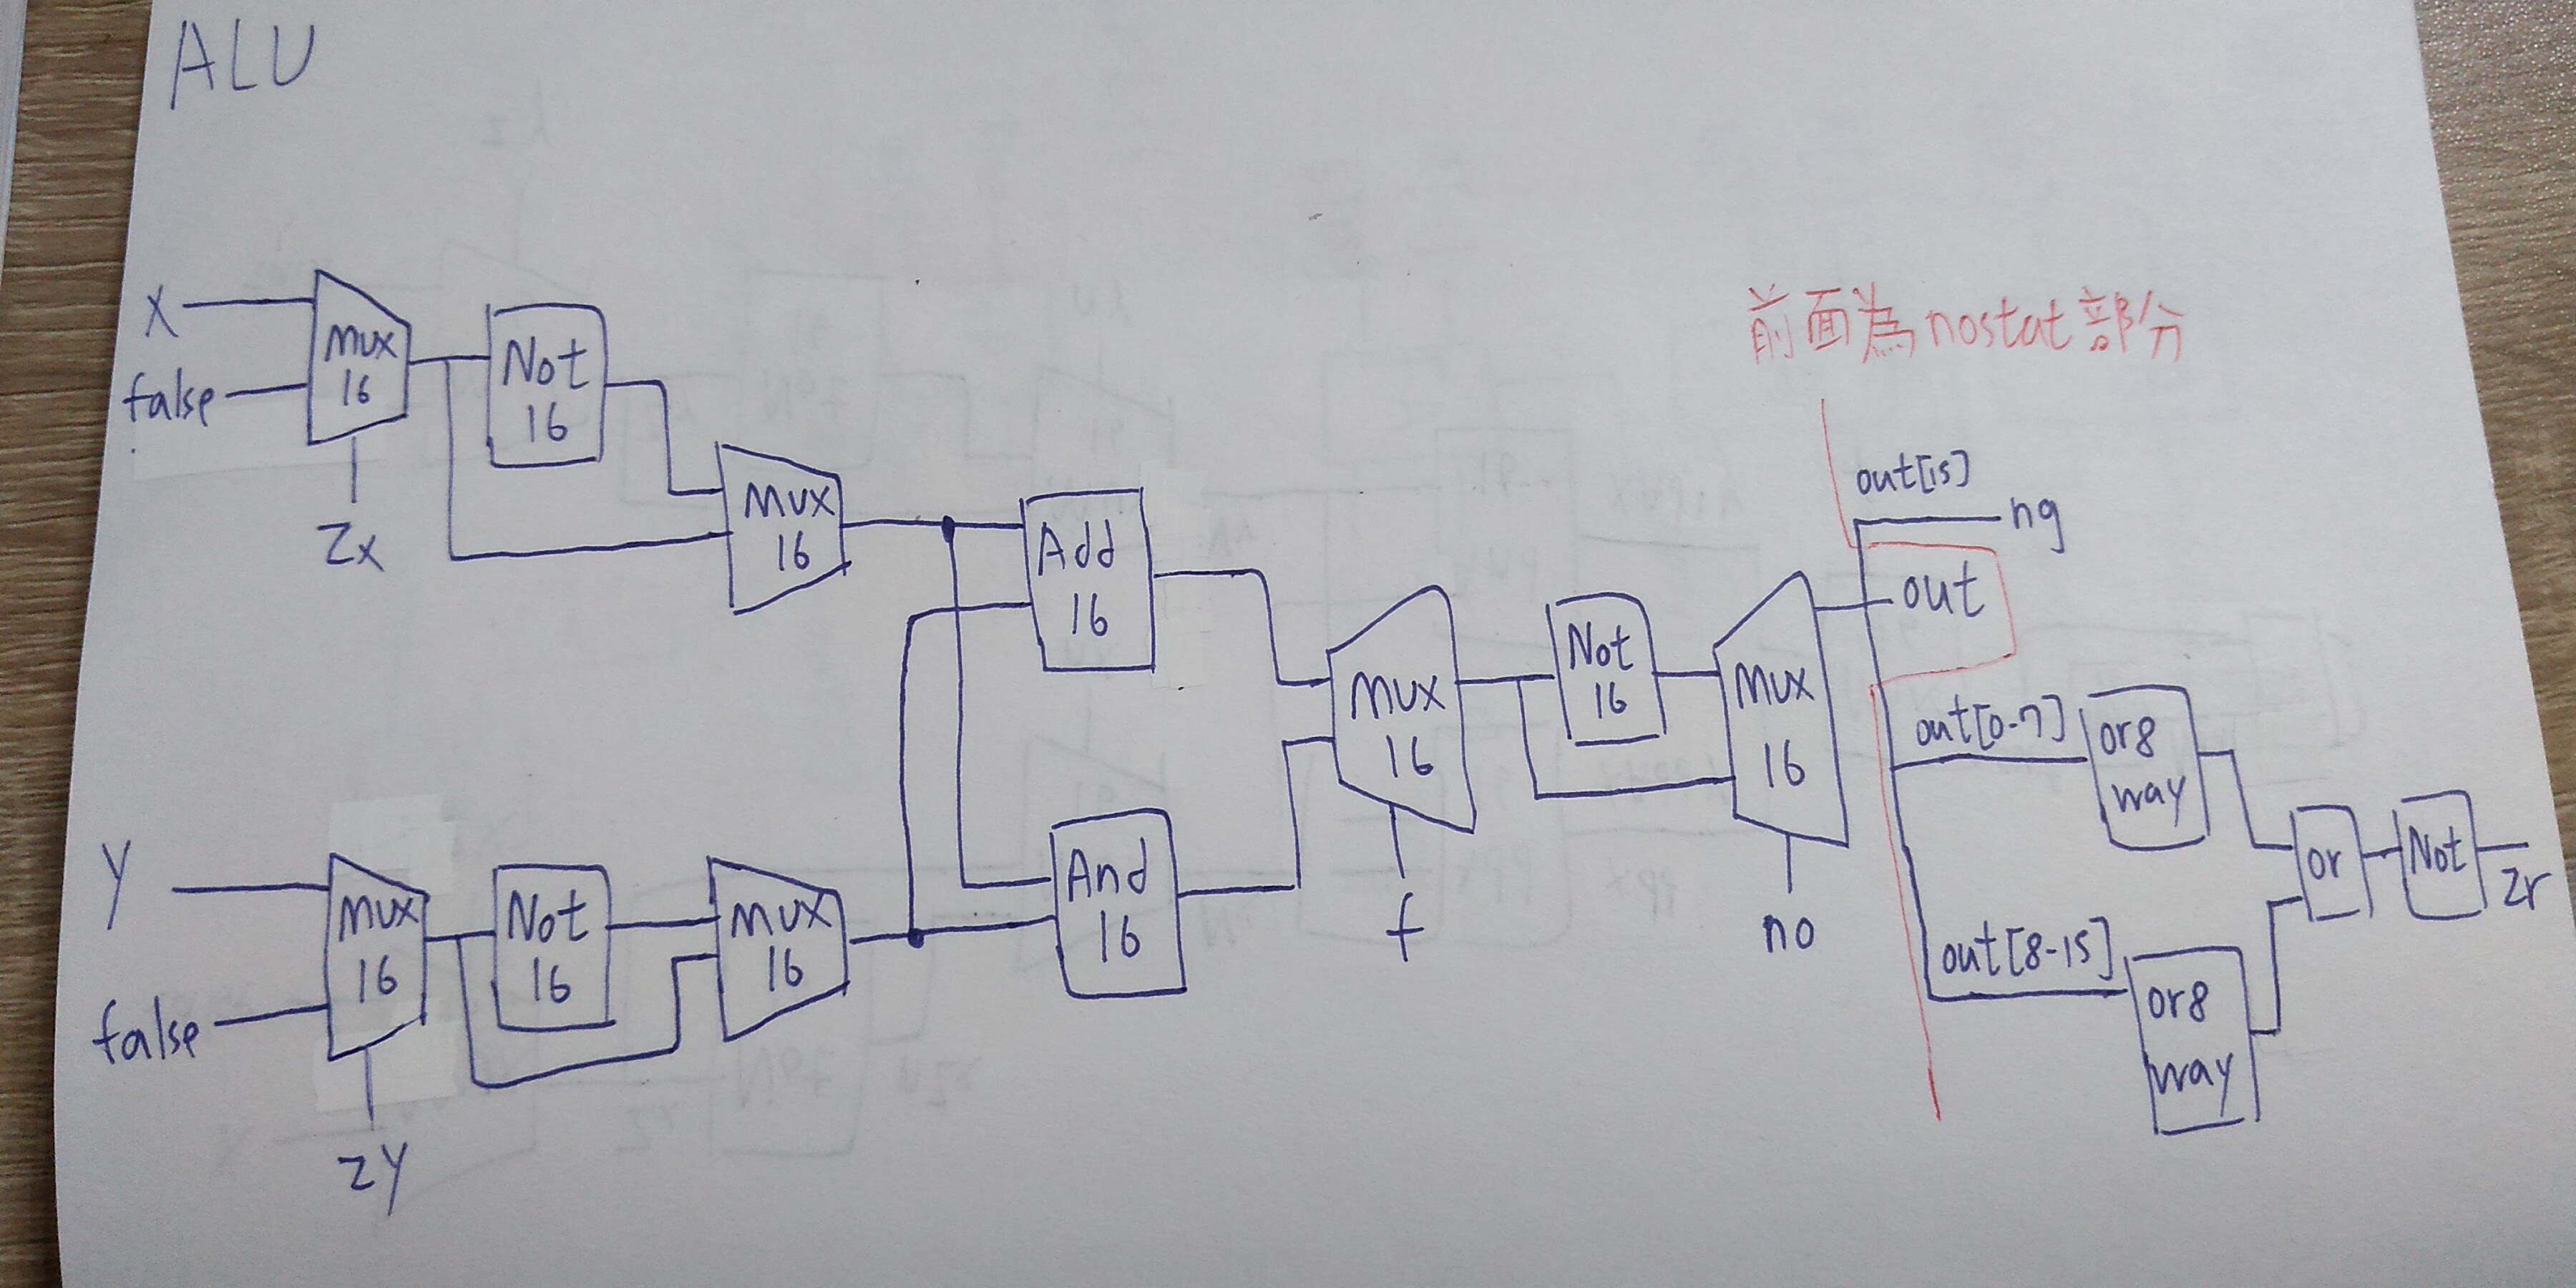 ALU
前面為nostat部分
x
false
Mux
16
zx
Not
16
Mux
16
Add
16
y
false
Mux
16
zy
Not
16
Mux
16
And
16
Mux
16
f
Not
16
Mux
16
no
out[15]
ng
out
out[0-7]
or8
way
out[8-15]
or8
way
or
Not
zr